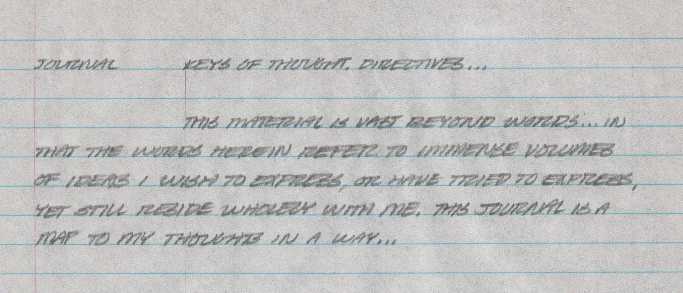 JOURNAL KEYS OF THOUGHT. DIRECTIVES...
THIS MATERIAL IS VAST BEYOND WORDS... IN
THAT THE WORDS HEREIN REFER TO IMMENSE VOLUMES
OF IDEAS I WISH TO EXPRESS, OR HAVE TRIED TO EXPRESS,
YET STILL RESIDE WHOLELY WITH ME. THIS JOURNAL IS A
MAP TO MY THOUGHTS IN A WAY...